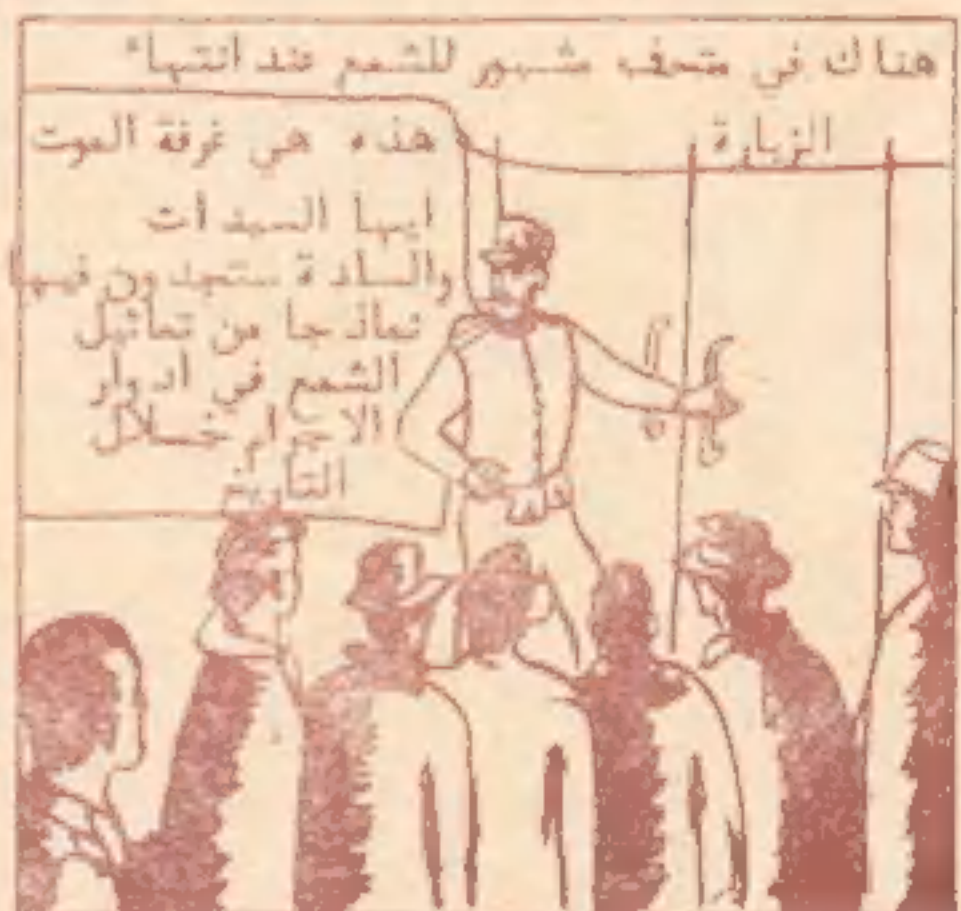 هناك في متحف مشهور للشمع عند انتهاء
الزيارة
هذه هي غرفة الموت
ايها السيدات
والسادة ستجدون فيها
نماذجا من تماثيل
الشمع في أدوار
الاجرام خلال
التأريخ